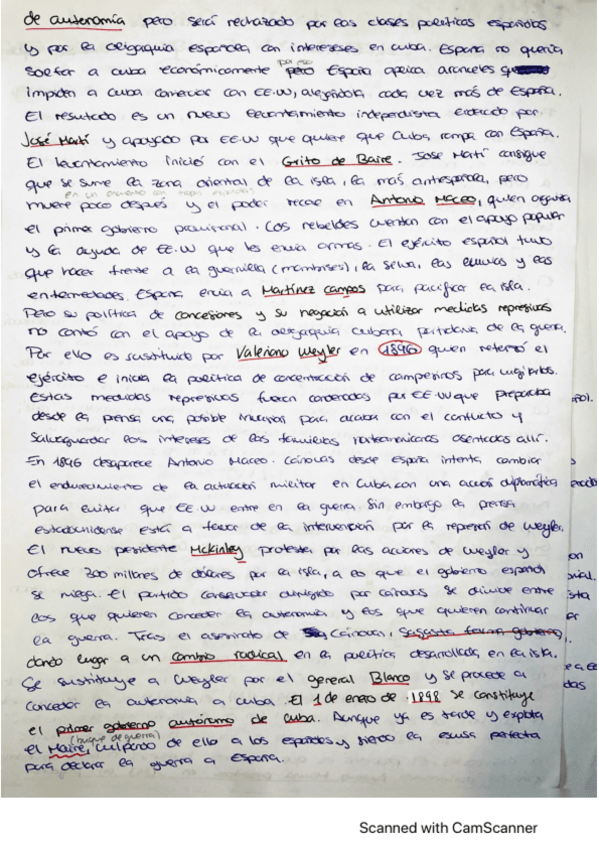 de autonomía pero será rechazado por las clases políticas españolas
y por la oligarquía española con intereses en Cuba. España no quería
soltar a Cuba económicamente por eso España aplica aranceles que
impiden a Cuba comerciar con EE.UU, alejándola cada vez más de España.
El resultado es un nuevo levantamiento independista liderado por
José Martí y apoyado por EE.UU que quiere que Cuba rompa con España.
El levantamiento inició con el Grito de Baire. Jose Martí consigue
que se sume la zona oriental de la isla, la más antiespañola, pero
muere poco después y el poder recae en Antonio Maceo, quien organiza
el primer gobierno provisional. Los rebeldes cuentan con el apoyo popular
y la ayuda de EE.UU que les envia armas. El ejército español tuvo
que hacer frente a la guerrilla (mambises), la selva, las lluvias y las
enfermedades. España envia a Martínez Campos para pacificar la isla.
Pero su política de concesiones y su negación a utilizar medidas represivas
no contó con el apoyo de la oligarquía cubana partidaria de la guerra.
Por ello es sustituido por Valeriano Weyler en 1896 quien reforzó el
ejército e inicia la política de concentración de campesinos para vigilarlos.
Estas medidas represivas fueron condenadas por EE.UU que preparaba
desde la prensa una posible invasión para acabar con el conflicto y
salvaguardar los intereses de las familias norteamericanas asentadas allí.
En 1896 desaparece Antonio Maceo. Cánovas desde España intenta cambiar
el endurecimiento de la actuación militar en Cuba con una acción diplomática
para evitar que EE.UU entre en la guerra. Sin embargo la prensa
estadounidense está a favor de la intervención por la represión de Weyler.
El nuevo presidente McKinley protesta por las acciones de Weyler y
ofrece 300 millones de dólares por la isla, a lo que el gobierno español
se niega. El partido conservador dirigido por Cánovas se divide entre
los que quieren conceder la autonomía y los que quieren continuar
la guerra. Tras el asesinato de Cánovas, Sagasta forma gobierno,
dando lugar a un cambio radical en la política desarrollada en la isla.
Se sustituye a Weyler por el general Blanco y se procede a
conceder la autonomía a Cuba. El 1 de enero de 1898 se constituye
el primer gobierno autónomo de Cuba. Aunque ya es tarde y explota
(buque de guerra)
el Maine, culpando de ello a los españoles y siendo la excusa perfecta
para declarar la guerra a España.
Scanned with CamScanner